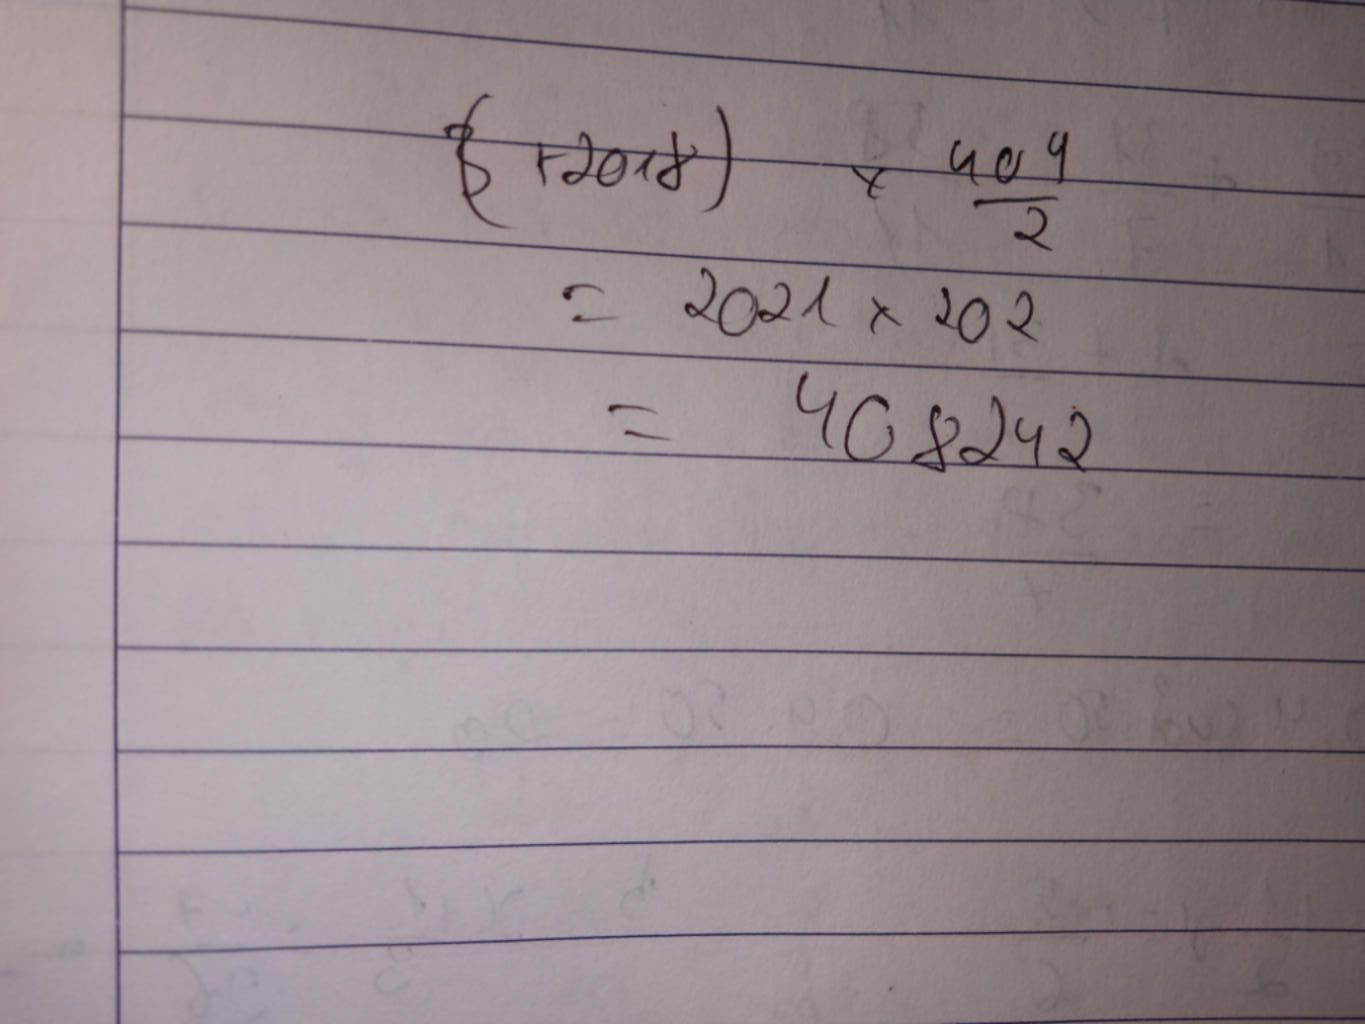 (3 +2018) × 404/2
= 2021 × 202
= 408242